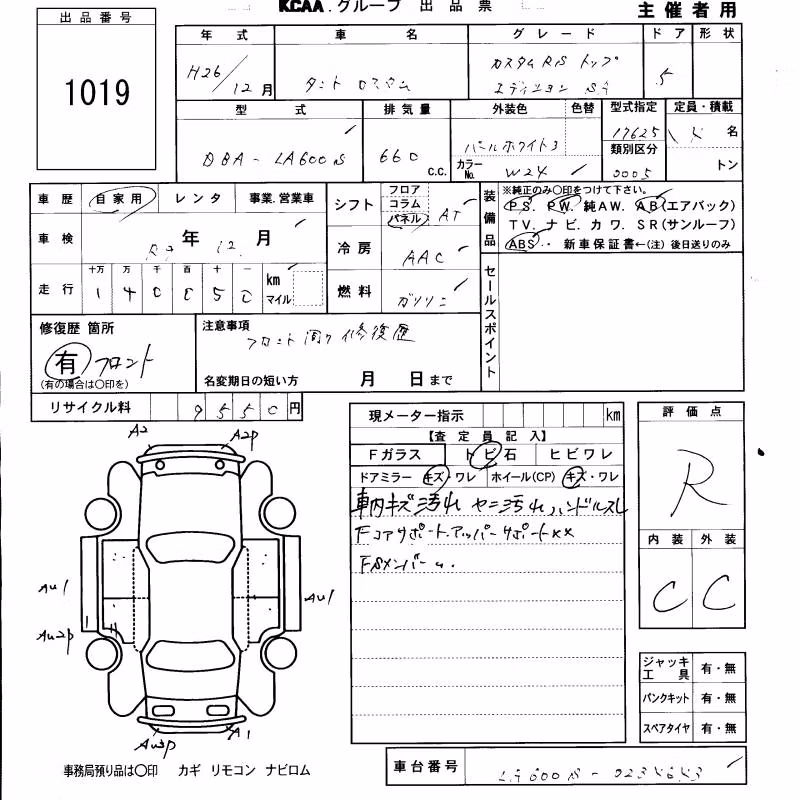 KCAA.グループ 出品票
主催者用
出品番号
1019
年式 車名 グレード ドア 形状
H26/12月 タント カスタム カスタムRS トップエディション SA 5
型式 排気量 外装色 色替 型式指定 定員・積載
DBA-LA600S 660 c.c. パールホワイト3 17625 名
カラーNo. W24 類別区分 0005 トン
車歴 自家用 レンタ 事業.営業車
シフト フロア コラム パネル AT
装備品 ※純正のみ○印をつけて下さい。
PS. PW. 純AW. AB(エアバック)
TV. ナビ. カワ. SR(サンルーフ)
ABS.. 新車保証書←(注) 後日送りのみ
車検 年 12月
冷房 AAC
走行 十万 万 千 百 十 一 km マイル
1 4 0 0 5 0
燃料 ガソリン
セールスポイント
修復歴 箇所
有 フロント
(有の場合は○印を)
注意事項
フロント廻り修復歴
名変期日の短い方 月 日まで
リサイクル料 9550円
現メーター指示 km
【査定員記入】
Fガラス トビ石 ヒビワレ
ドアミラー キズ・ワレ ホイール(CP) キズ・ワレ
車内キズ汚れ ヤニ汚れ ハンドルスレ
Fコアサポート.アッパーサポートXX
FSメンバー
評価点
R
内装 外装
C C
A2 A2P
AU1 AU1
AU2P
AU3P A1
ジャッキ工具 有・無
パンクキット 有・無
スペアタイヤ 有・無
事務局預り品は○印 カギ リモコン ナビロム
車台番号 LA600S-